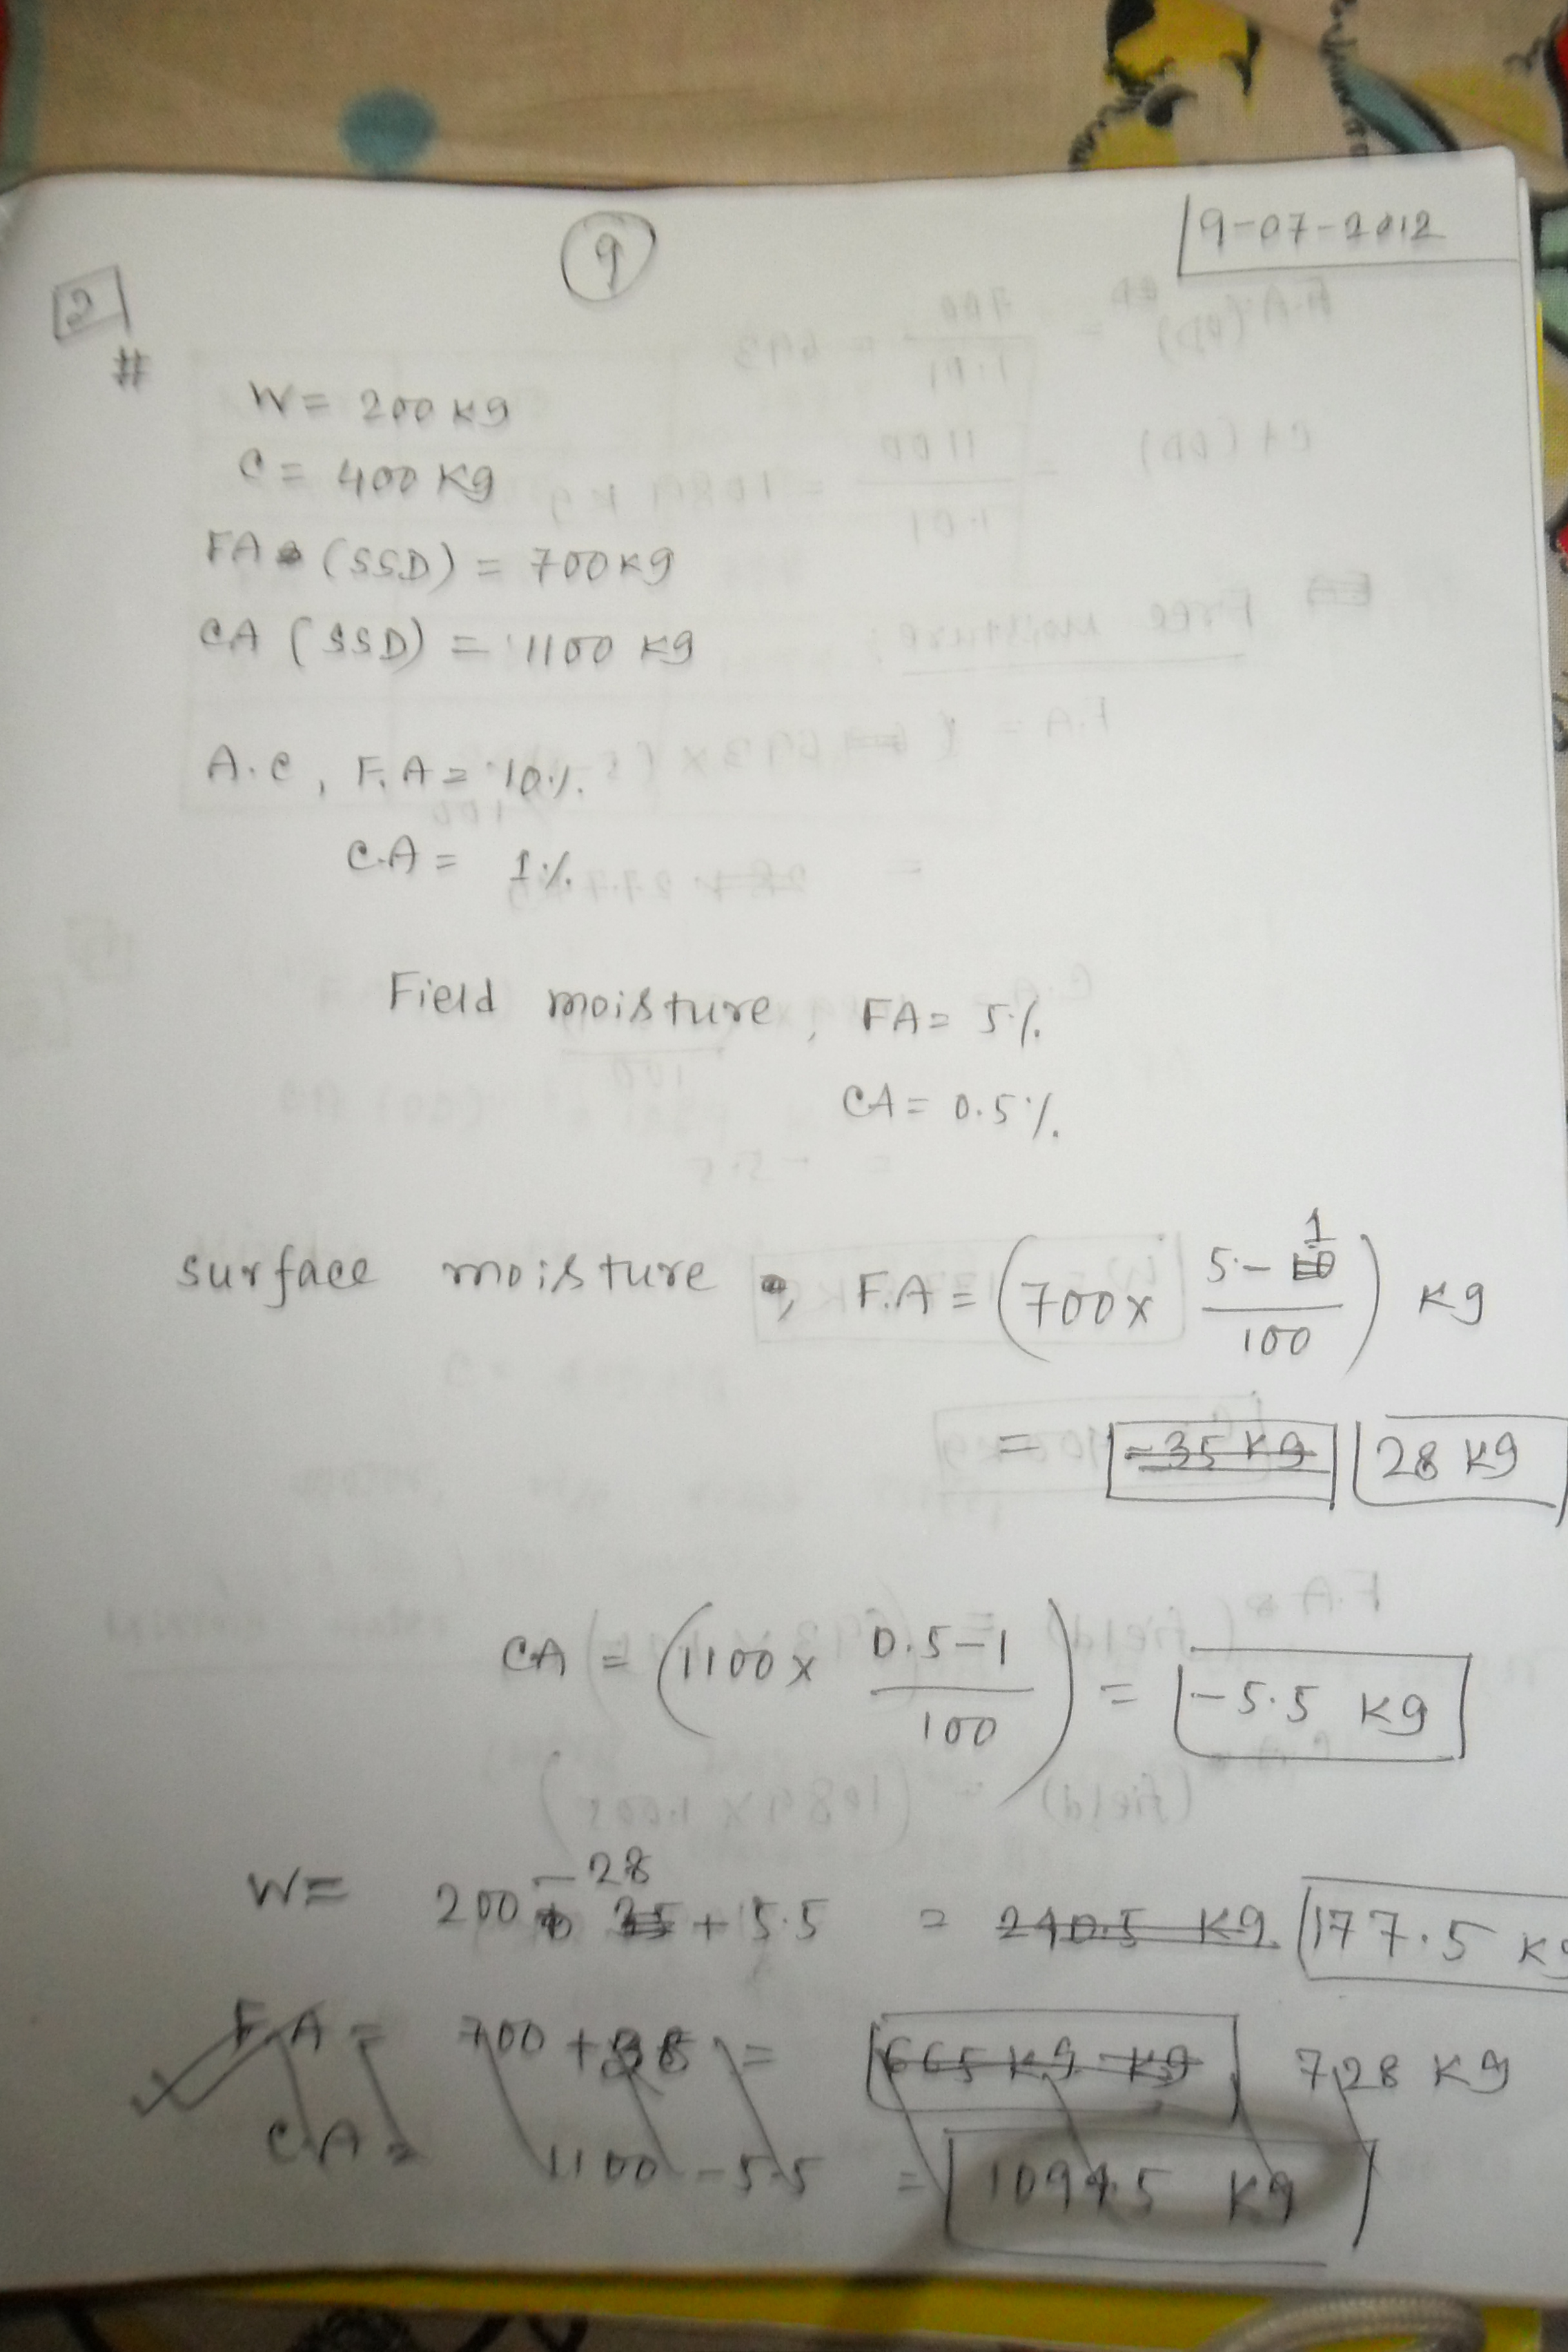 9
19-07-2012
2
#
W = 200 kg
C = 400 kg
FA (SSD) = 700 kg
CA (SSD) = 1100 kg
A.C, F.A = 10%.
C.A = 1%.
Field moisture, FA = 5%.
CA = 0.5%.
surface moisture, F.A = (700 x (5 - 1)/100) kg
= -35 kg 28 kg
CA = (1100 x (0.5 - 1)/100) = -5.5 kg
W = 200 - 28 + 5.5 = 240.5 kg 177.5 kg
F.A = 700 + 28 = 665 kg kg 728 kg
C.A = 1100 - 5.5 = 1094.5 kg